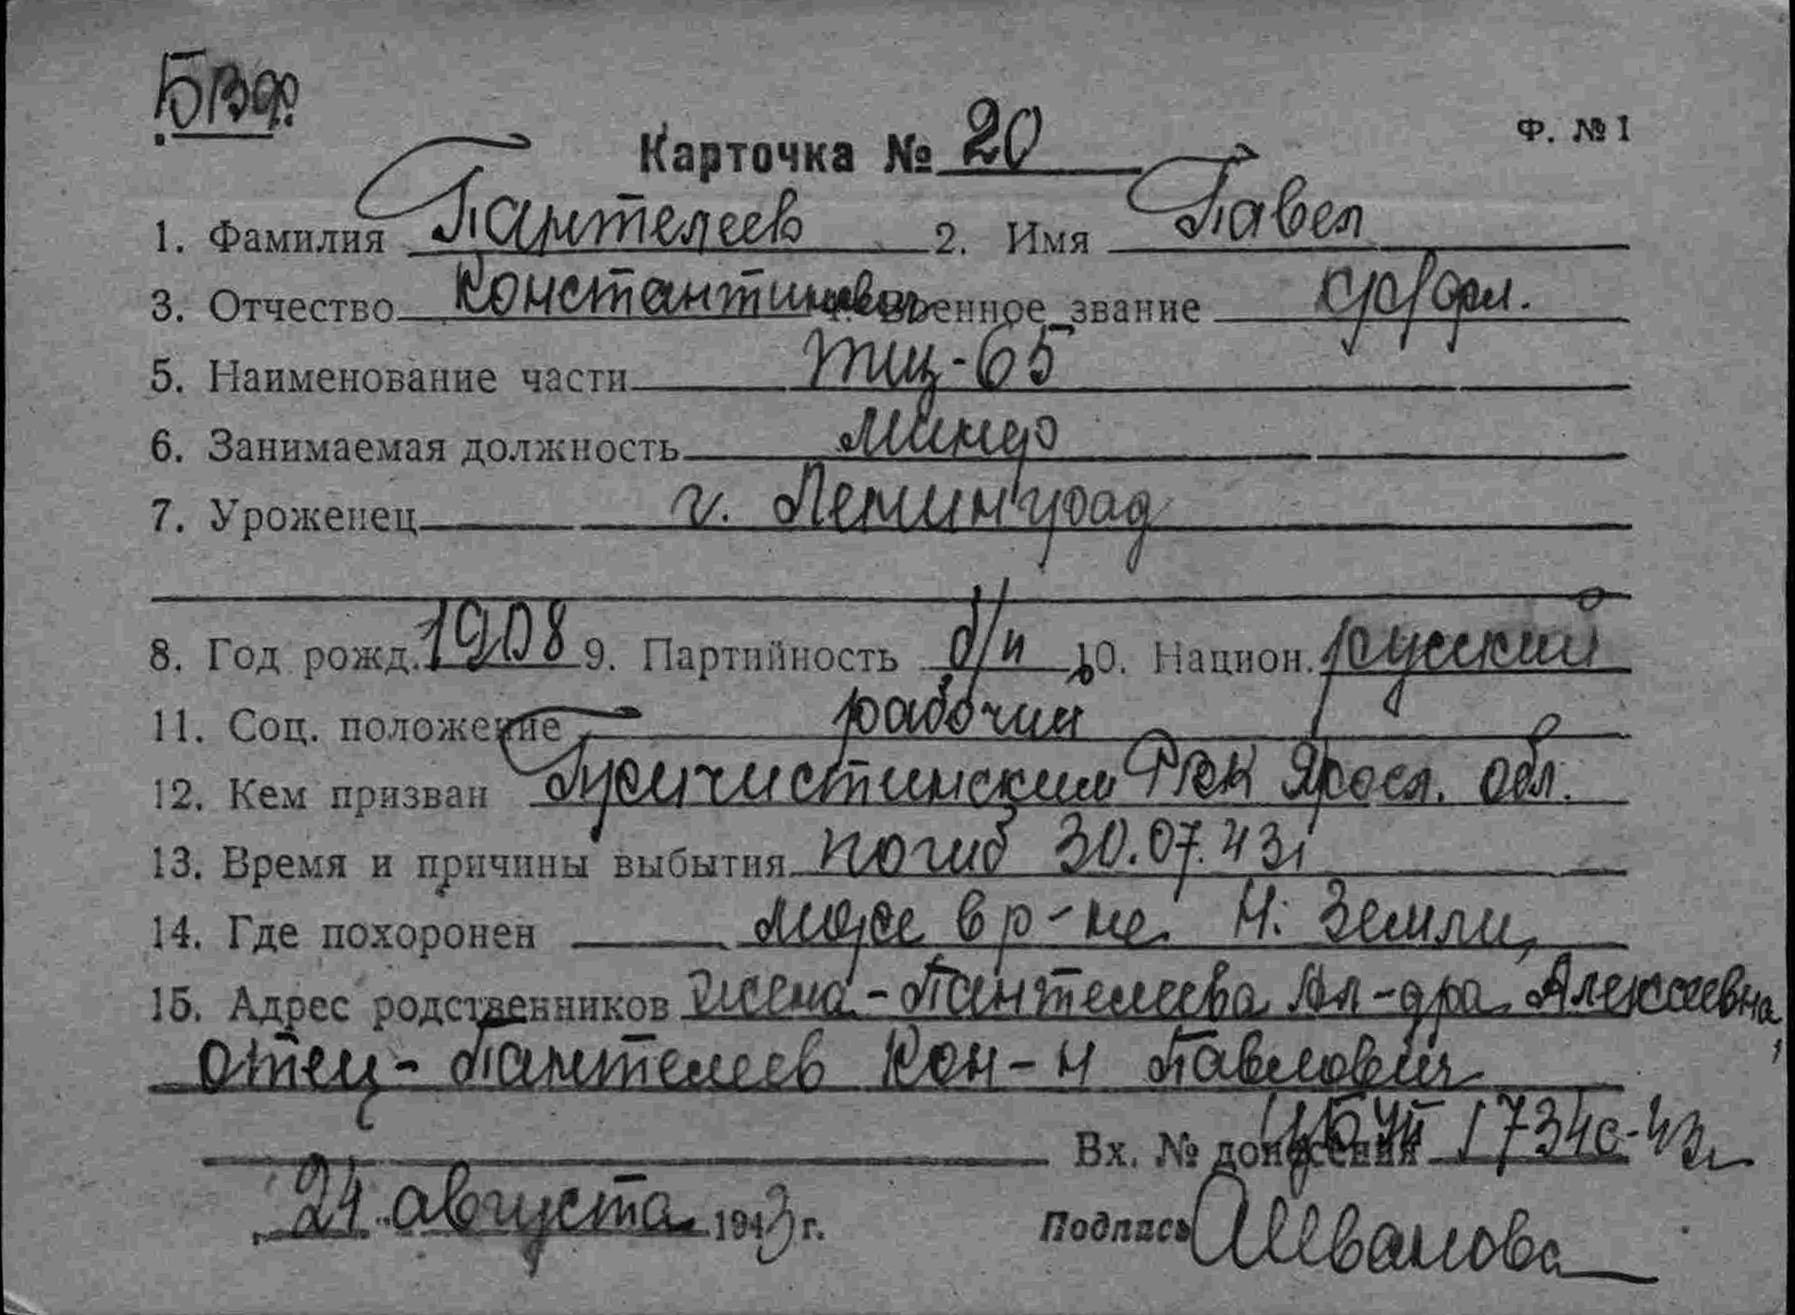 БВФ.
Карточка № 20
Ф. № 1
1. Фамилия Пантелеев 2. Имя Павел
3. Отчество Константинович военное звание ст/ф.
5. Наименование части ТЩ-65
6. Занимаемая должность минер
7. Уроженец г. Ленинград
8. Год рожд. 1908 9. Партийность б/п 10. Национ. русский
11. Соц. положение рабочий
12. Кем призван Пречистинским РВК Яросл. обл.
13. Время и причины выбытия погиб 30.07.43г
14. Где похоронен море в р-не Н. Земли,
15. Адрес родственников жена - Пантелеева Ал-дра Алексеевна,
отец - Пантелеев Кон-н Павлович
Вх. № донесения 1734с-43г
24 августа 1943 г. Подпись